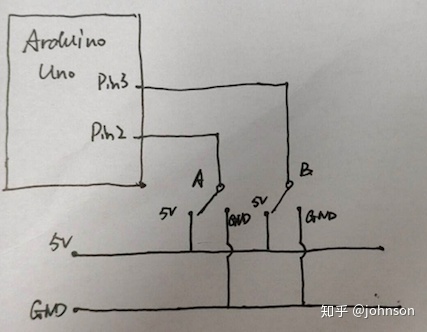 Arduino
Uno
Pin3
Pin2
A
B
5V
GND
5V
GND
5V
GND
知乎 @johnson